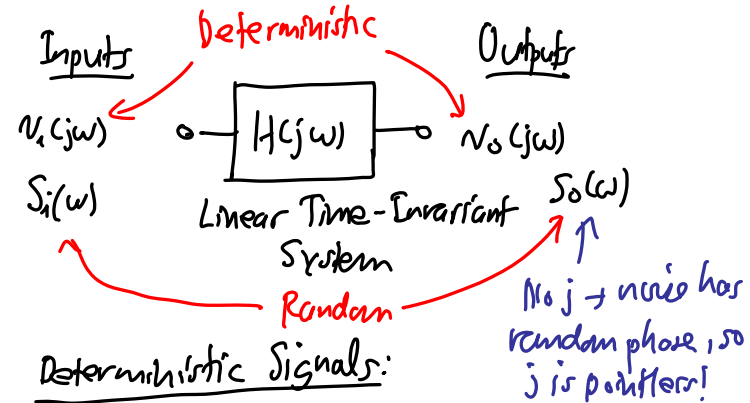 Deterministic
Inputs
Outputs
Vi(jω)
H(jω)
Vo(jω)
Si(ω)
So(ω)
Linear Time-Invariant
System
Random
No j → noise has
random phase, so
j is pointless!
Deterministic Signals: